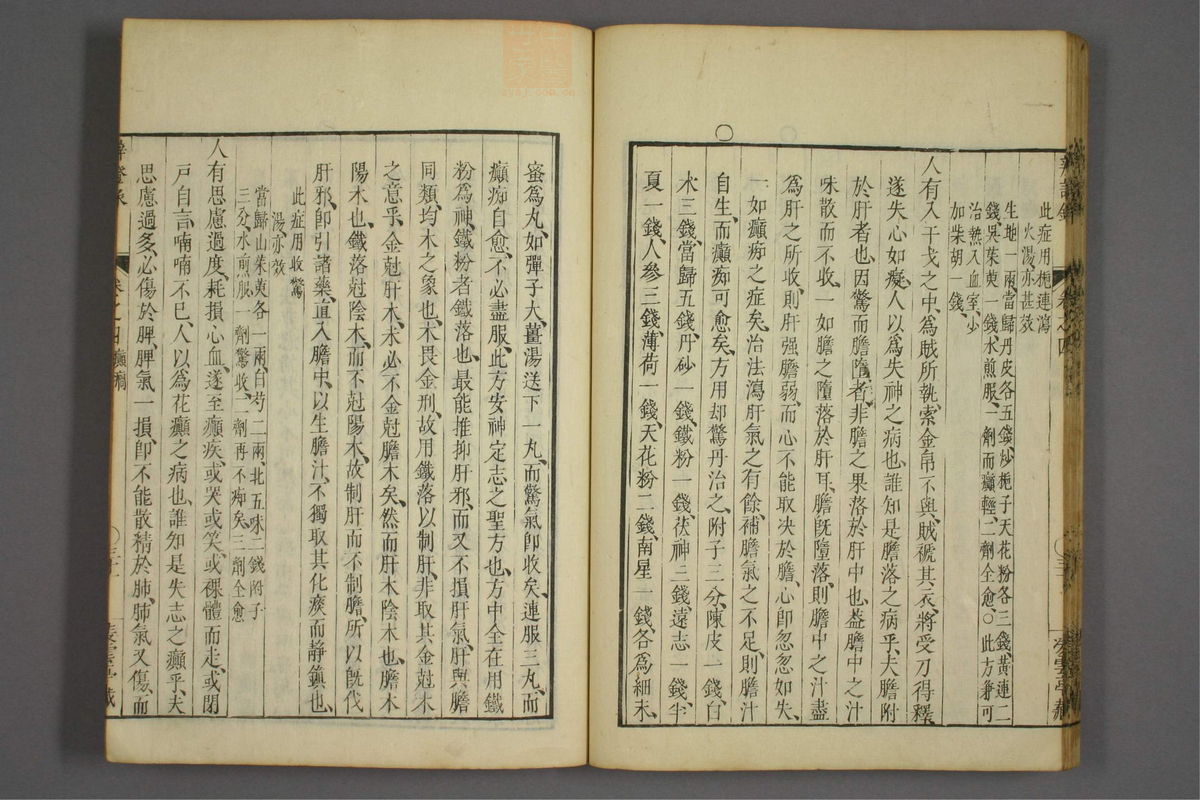 此症用梔連瀉
火湯亦甚效
生地一兩、當歸丹皮各五錢、炒梔子天花粉各三錢、黃連二
錢、吳茱萸一錢、水煎服、一劑而癲輕、二劑全愈、○此方兼可
治熱入血室、少
加柴胡一錢、
人有入干戈之中、為賊所執、索金帛不與、賊褫其衣、將受刀得釋、
遂失心如癡、人以為失神之病也、誰知是膽落之病乎、夫膽附
於肝者也、因驚而膽墮者、非膽之果落於肝中也、葢膽中之汁
味散而不收、一如膽之墮落於肝耳、膽旣墮落、則膽中之汁盡
為肝之所收、則肝强膽弱、而心不能取決於膽、心卽忽忽如失、
一如癲痴之症矣、治法瀉肝氣之有餘、補膽氣之不足、則膽汁
自生、而癲痴可愈矣、方用却驚丹治之、附子三分、陳皮一錢、白
朮三錢、當歸五錢、丹砂一錢、鐵粉一錢、茯神三錢、遠志一錢、半
夏一錢、人參三錢、薄荷一錢、天花粉二錢、南星一錢、各為細末、
蜜為丸、如彈子大、薑湯送下一丸、而驚氣卽收矣、連服三丸、而
癲痴自愈、不必盡服、此方安神定志之聖方也、方中全在用鐵
粉為神、鐵粉者鐵落也、最能推抑肝邪、而又不損肝氣、肝與膽
同類、均木之象也、木畏金刑、故用鐵落以制肝、非取其金尅木
之意乎、金尅肝木、未必不金尅膽木矣、然而肝木陰木也、膽木
陽木也、鐵落尅陰木、而不尅陽木、故制肝而不制膽、所以旣伐
肝邪、卽引諸藥、直入膽中、以生膽汁、不獨取其化痰而靜鎮也、
此症用收驚
湯、亦效
當歸山茱萸各一兩、白芍二兩、北五味二錢、附子
三分、水煎服、一劑驚收、二劑再不痴矣、三劑全愈
人有思慮過度、耗損心血、遂至癲疾、或哭或笑、或裸體而走、或閉
戸自言、喃喃不已、人以為花癲之病也、誰知是失志之癲乎、夫
思慮過多、必傷於脾、脾氣一損、卽不能散精於肺、肺氣又傷、而